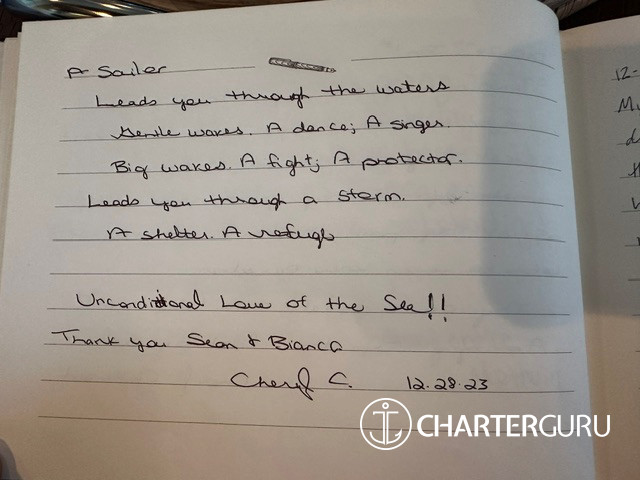 A Sailer
Leads you through the waters
Gentle waves. A dance; A singer.
Big waves. A fight; A protector.
Leads you through a storm.
A shelter. A refuge
Unconditional Love of the Sea!!
Thank you Sean & Bianca
Cheryl C. 12.28.23
12-
CHARTERGURU